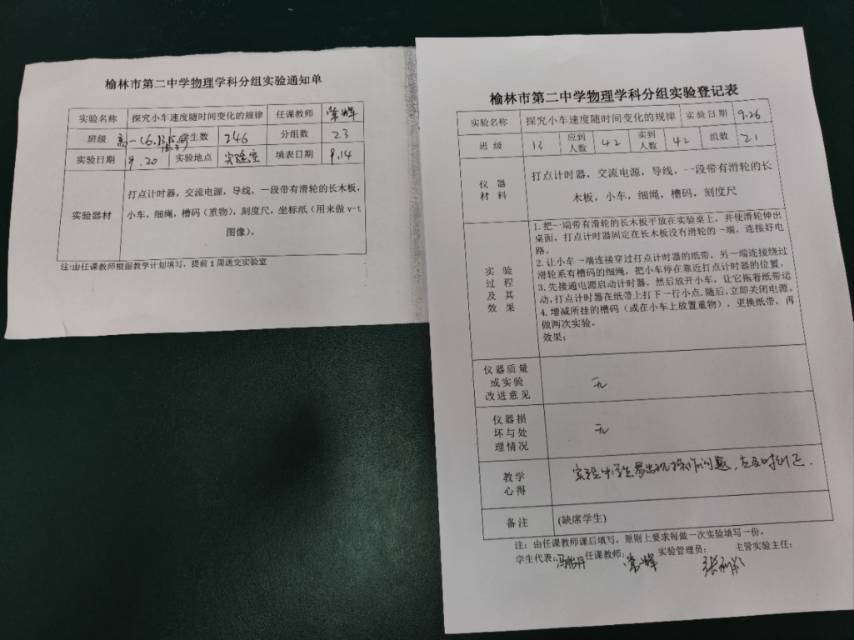 榆林市第二中学物理学科分组实验通知单
实验名称 探究小车速度随时间变化的规律 任课教师 常辉
班级 高一 学生数 246 分组数 23
实验日期 9.20 实验地点 实验室 填表日期 9.14
实验器材
打点计时器，交流电源，导线，一段带有滑轮的长木板，
小车，细绳，槽码（重物），刻度尺，坐标纸（用来做v-t
图像）。
注:由任课教师根据教学计划填写，提前1周送交实验室
榆林市第二中学物理学科分组实验登记表
实验名称 探究小车速度随时间变化的规律 实验日期 9.26
班级 13 应到人数 42 实到人数 42 组数 21
仪器材料
打点计时器，交流电源，导线，一段带有滑轮的长
木板，小车，细绳，槽码，刻度尺
实验过程及其效果
1.把一端带有滑轮的长木板平放在实验桌上，并使滑轮伸出
桌面，打点计时器固定在长木板没有滑轮的一端，连接好电
路。
2.让小车一端连接穿过打点计时器的纸带，另一端连接绕过
滑轮系有槽码的细绳，把小车停在靠近打点计时器的位置。
3.先接通电源启动计时器，然后放开小车，让它拖着纸带运
动，打点计时器在纸带上打下一行小点，随后，立即关闭电源。
4.增减所挂的槽码（或在小车上放置重物），更换纸带，再
做两次实验。
效果:
仪器质量或实验改进意见 无
仪器损坏与处理情况 无
教学心得 实验中学生易出现操作问题，应及时纠正.
备注 (缺席学生)
注：由任课教师课后填写，原则上要求每做一次实验填写一份。
学生代表: 任课教师: 常辉 实验管理员: 主管实验主任: